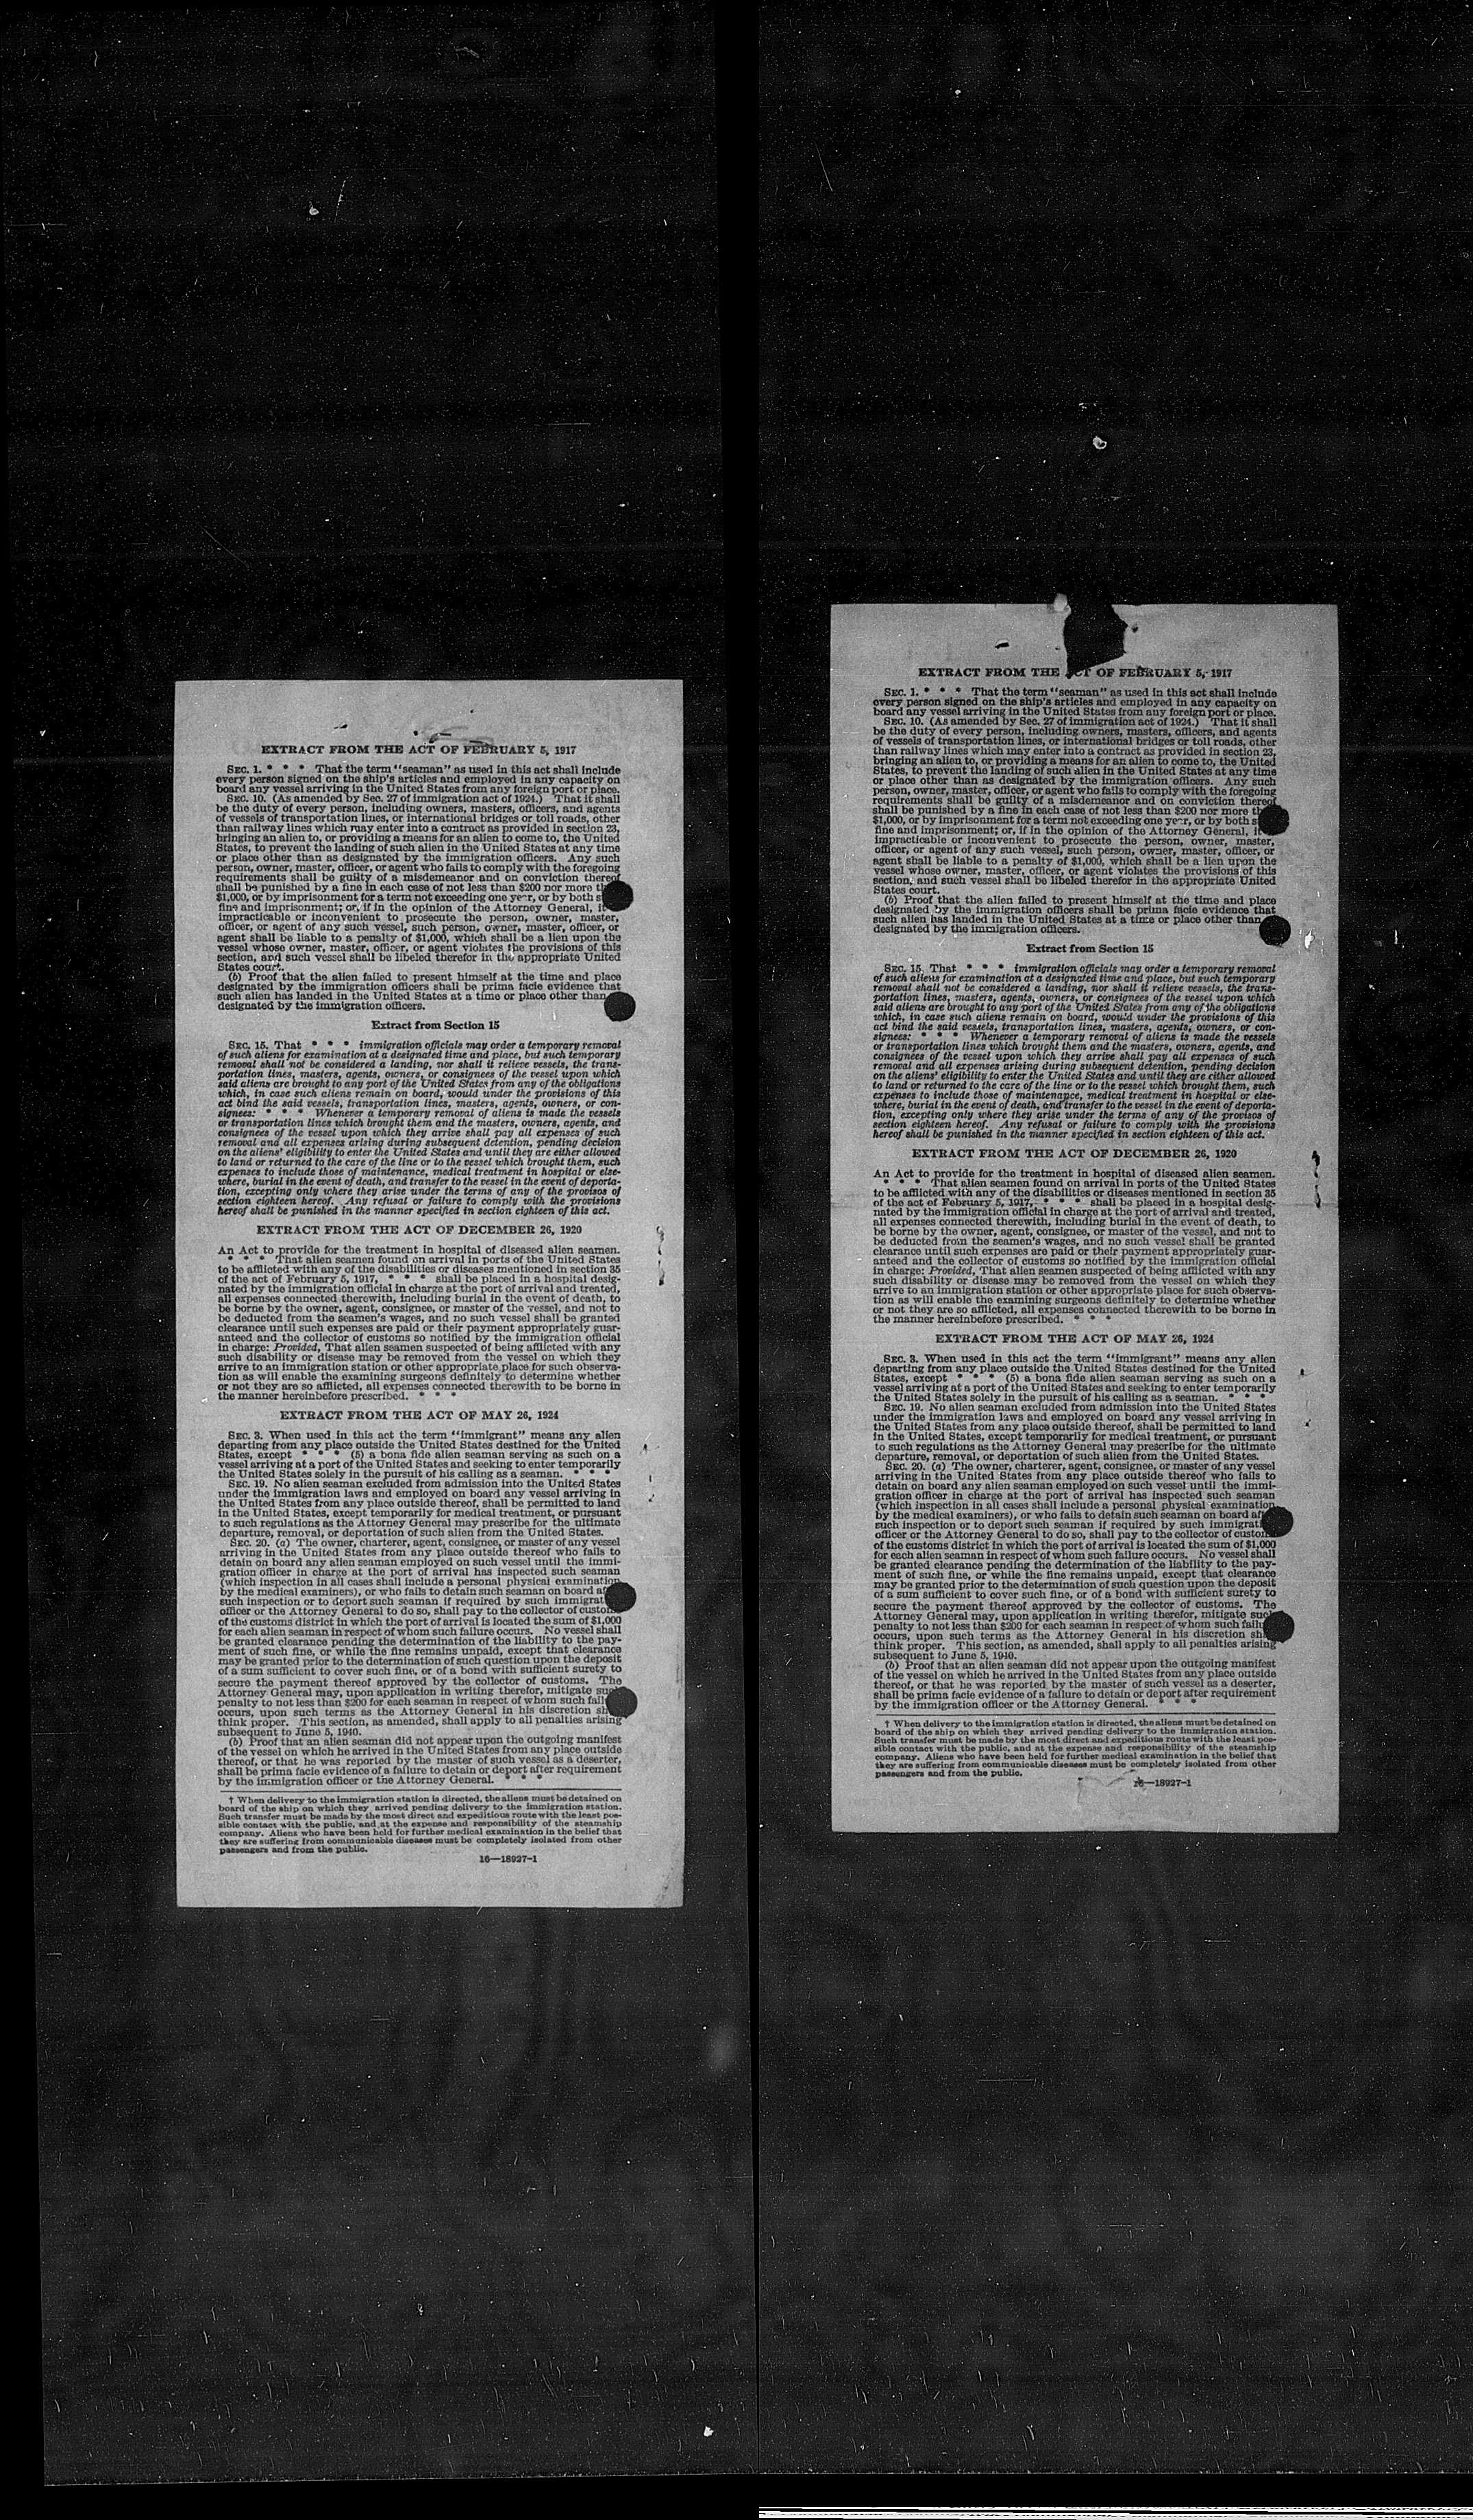 EXTRACT FROM THE ACT OF FEBRUARY 5, 1917
SEC. 1. * * * That the term "seaman" as used in this act shall include
every person signed on the ship's articles and employed in any capacity on
board any vessel arriving in the United States from any foreign port or place.
SEC. 10. (As amended by Sec. 27 of immigration act of 1924.) That it shall
be the duty of every person, including owners, masters, officers, and agents
of vessels of transportation lines, or international bridges or toll roads, other
than railway lines which may enter into a contract as provided in section 23,
bringing an alien to, or providing a means for an alien to come to, the United
States, to prevent the landing of such alien in the United States at any time
or place other than as designated by the immigration officers. Any such
person, owner, master, officer, or agent who fails to comply with the foregoing
requirements shall be guilty of a misdemeanor and on conviction thereof
shall be punished by a fine in each case of not less than $200 nor more
$1,000, or by imprisonment for a term not exceeding one year, or by both
fine and imprisonment; or, if in the opinion of the Attorney General, it
impracticable or inconvenient to prosecute the person, owner, master,
officer, or agent of any such vessel, such person, owner, master, officer, or
agent shall be liable to a penalty of $1,000, which shall be a lien upon the
vessel whose owner, master, officer, or agent violates the provisions of this
section, and such vessel shall be libeled therefor in the appropriate United
States court.
(b) Proof that the alien failed to present himself at the time and place
designated by the immigration officers shall be prima facie evidence that
such alien has landed in the United States at a time or place other than
designated by the immigration officers.
Extract from Section 15
SEC. 15. That * * * immigration officials may order a temporary removal
of such aliens for examination at a designated time and place, but such temporary
removal shall not be considered a landing, nor shall it relieve vessels, the trans-
portation lines, masters, agents, owners, or consignees of the vessel upon which
said aliens are brought to any port of the United States from any of the obligations
which, in case such aliens remain on board, would under the provisions of this
act bind the said vessels, transportation lines, masters, agents, owners, or con-
signees: * * * Whenever a temporary removal of aliens is made the vessels
or transportation lines which brought them and the masters, owners, agents, and
consignees of the vessel upon which they arrive shall pay all expenses of such
removal and all expenses arising during subsequent detention, pending decision
on the aliens' eligibility to enter the United States and until they are either allowed
to land or returned to the care of the line or to the vessel which brought them, such
expenses to include those of maintenance, medical treatment in hospital or else-
where, burial in the event of death, and transfer to the vessel in the event of deporta-
tion, excepting only where they arise under the terms of any of the provisos of
section eighteen hereof. Any refusal or failure to comply with the provisions
hereof shall be punished in the manner specified in section eighteen of this act.
EXTRACT FROM THE ACT OF DECEMBER 26, 1920
An Act to provide for the treatment in hospital of diseased alien seamen.
* * * * That alien seamen found on arrival in ports of the United States
to be afflicted with any of the disabilities or diseases mentioned in section 35
of the act of February 5, 1917, * * * shall be placed in a hospital desig-
nated by the immigration official in charge at the port of arrival and treated,
all expenses connected therewith, including burial in the event of death, to
be borne by the owner, agent, consignee, or master of the vessel, and not to
be deducted from the seamen's wages, and no such vessel shall be granted
clearance until such expenses are paid or their payment appropriately guar-
anteed and the collector of customs so notified by the immigration official
in charge: Provided, That alien seamen suspected of being afflicted with any
such disability or disease may be removed from the vessel on which they
arrive to an immigration station or other appropriate place for such observa-
tion as will enable the examining surgeons definitely to determine whether
or not they are so afflicted, all expenses connected therewith to be borne in
the manner hereinbefore prescribed. * * *
EXTRACT FROM THE ACT OF MAY 26, 1924
SEC. 3. When used in this act the term "immigrant" means any alien
departing from any place outside the United States destined for the United
States, except * * * (5) a bona fide alien seaman serving as such on a
vessel arriving at a port of the United States and seeking to enter temporarily
the United States solely in the pursuit of his calling as a seaman. * * *
SEC. 19. No alien seaman excluded from admission into the United States
under the immigration laws and employed on board any vessel arriving in
the United States from any place outside thereof, shall be permitted to land
in the United States, except temporarily for medical treatment, or pursuant
to such regulations as the Attorney General may prescribe for the ultimate
departure, removal, or deportation of such alien from the United States.
SEC. 20. (a) The owner, charterer, agent, consignee, or master of any vessel
arriving in the United States from any place outside thereof who fails to
detain on board any alien seaman employed on such vessel until the immi-
gration officer in charge at the port of arrival has inspected such seaman
(which inspection in all cases shall include a personal physical examination
by the medical examiners), or who fails to detain such seaman on board
such inspection or to deport such seaman if required by such
officer or the Attorney General to do so, shall pay to the collector of
of the customs district in which the port of arrival is located the sum of $1,000
for each alien seaman in respect of whom such failure occurs. No vessel shall
be granted clearance pending the determination of the liability to the pay-
ment of such fine, or while the fine remains unpaid, except that clearance
may be granted prior to the determination of such question upon the deposit
of a sum sufficient to cover such fine, or of a bond with sufficient surety to
secure the payment thereof approved by the collector of customs. The
Attorney General may, upon application in writing therefor, mitigate such
penalty to not less than $200 for each seaman in respect of whom such
occurs, upon such terms as the Attorney General in his discretion
think proper. This section, as amended, shall apply to all penalties arising
subsequent to June 5, 1940.
(b) Proof that an alien seaman did not appear upon the outgoing manifest
of the vessel on which he arrived in the United States from any place outside
thereof, or that he was reported by the master of such vessel as a deserter,
shall be prima facie evidence of a failure to detain or deport after requirement
by the immigration officer or the Attorney General. * * *
† When delivery to the immigration station is directed, the aliens must be detained on
board of the ship on which they arrived pending delivery to the immigration station.
Such transfer must be made by the most direct and expeditious route with the least pos-
sible contact with the public, and at the expense and responsibility of the steamship
company. Aliens who have been held for further medical examination in the belief that
they are suffering from communicable diseases must be completely isolated from other
passengers and from the public.
16—18927-1
EXTRACT FROM THE ACT OF FEBRUARY 5, 1917
SEC. 1. * * * That the term "seaman" as used in this act shall include
every person signed on the ship's articles and employed in any capacity on
board any vessel arriving in the United States from any foreign port or place.
SEC. 10. (As amended by Sec. 27 of immigration act of 1924.) That it shall
be the duty of every person, including owners, masters, officers, and agents
of vessels of transportation lines, or international bridges or toll roads, other
than railway lines which may enter into a contract as provided in section 23,
bringing an alien to, or providing a means for an alien to come to, the United
States, to prevent the landing of such alien in the United States at any time
or place other than as designated by the immigration officers. Any such
person, owner, master, officer, or agent who fails to comply with the foregoing
requirements shall be guilty of a misdemeanor and on conviction thereof
shall be punished by a fine in each case of not less than $200 nor more
$1,000, or by imprisonment for a term not exceeding one year, or by both
fine and imprisonment; or, if in the opinion of the Attorney General, it
impracticable or inconvenient to prosecute the person, owner, master,
officer, or agent of any such vessel, such person, owner, master, officer, or
agent shall be liable to a penalty of $1,000, which shall be a lien upon the
vessel whose owner, master, officer, or agent violates the provisions of this
section, and such vessel shall be libeled therefor in the appropriate United
States court.
(b) Proof that the alien failed to present himself at the time and place
designated by the immigration officers shall be prima facie evidence that
such alien has landed in the United States at a time or place other than
designated by the immigration officers.
Extract from Section 15
SEC. 15. That * * * immigration officials may order a temporary removal
of such aliens for examination at a designated time and place, but such temporary
removal shall not be considered a landing, nor shall it relieve vessels, the trans-
portation lines, masters, agents, owners, or consignees of the vessel upon which
said aliens are brought to any port of the United States from any of the obligations
which, in case such aliens remain on board, would under the provisions of this
act bind the said vessels, transportation lines, masters, agents, owners, or con-
signees: * * * Whenever a temporary removal of aliens is made the vessels
or transportation lines which brought them and the masters, owners, agents, and
consignees of the vessel upon which they arrive shall pay all expenses of such
removal and all expenses arising during subsequent detention, pending decision
on the aliens' eligibility to enter the United States and until they are either allowed
to land or returned to the care of the line or to the vessel which brought them, such
expenses to include those of maintenance, medical treatment in hospital or else-
where, burial in the event of death, and transfer to the vessel in the event of deporta-
tion, excepting only where they arise under the terms of any of the provisos of
section eighteen hereof. Any refusal or failure to comply with the provisions
hereof shall be punished in the manner specified in section eighteen of this act.
EXTRACT FROM THE ACT OF DECEMBER 26, 1920
An Act to provide for the treatment in hospital of diseased alien seamen.
* * * * That alien seamen found on arrival in ports of the United States
to be afflicted with any of the disabilities or diseases mentioned in section 35
of the act of February 5, 1917, * * * shall be placed in a hospital desig-
nated by the immigration official in charge at the port of arrival and treated,
all expenses connected therewith, including burial in the event of death, to
be borne by the owner, agent, consignee, or master of the vessel, and not to
be deducted from the seamen's wages, and no such vessel shall be granted
clearance until such expenses are paid or their payment appropriately guar-
anteed and the collector of customs so notified by the immigration official
in charge: Provided, That alien seamen suspected of being afflicted with any
such disability or disease may be removed from the vessel on which they
arrive to an immigration station or other appropriate place for such observa-
tion as will enable the examining surgeons definitely to determine whether
or not they are so afflicted, all expenses connected therewith to be borne in
the manner hereinbefore prescribed. * * *
EXTRACT FROM THE ACT OF MAY 26, 1924
SEC. 3. When used in this act the term "immigrant" means any alien
departing from any place outside the United States destined for the United
States, except * * * (5) a bona fide alien seaman serving as such on a
vessel arriving at a port of the United States and seeking to enter temporarily
the United States solely in the pursuit of his calling as a seaman. * * *
SEC. 19. No alien seaman excluded from admission into the United States
under the immigration laws and employed on board any vessel arriving in
the United States from any place outside thereof, shall be permitted to land
in the United States, except temporarily for medical treatment, or pursuant
to such regulations as the Attorney General may prescribe for the ultimate
departure, removal, or deportation of such alien from the United States.
SEC. 20. (a) The owner, charterer, agent, consignee, or master of any vessel
arriving in the United States from any place outside thereof who fails to
detain on board any alien seaman employed on such vessel until the immi-
gration officer in charge at the port of arrival has inspected such seaman
(which inspection in all cases shall include a personal physical examination
by the medical examiners), or who fails to detain such seaman on board
such inspection or to deport such seaman if required by such
officer or the Attorney General to do so, shall pay to the collector of
of the customs district in which the port of arrival is located the sum of $1,000
for each alien seaman in respect of whom such failure occurs. No vessel shall
be granted clearance pending the determination of the liability to the pay-
ment of such fine, or while the fine remains unpaid, except that clearance
may be granted prior to the determination of such question upon the deposit
of a sum sufficient to cover such fine, or of a bond with sufficient surety to
secure the payment thereof approved by the collector of customs. The
Attorney General may, upon application in writing therefor, mitigate such
penalty to not less than $200 for each seaman in respect of whom such
occurs, upon such terms as the Attorney General in his discretion
think proper. This section, as amended, shall apply to all penalties arising
subsequent to June 5, 1940.
(b) Proof that an alien seaman did not appear upon the outgoing manifest
of the vessel on which he arrived in the United States from any place outside
thereof, or that he was reported by the master of such vessel as a deserter,
shall be prima facie evidence of a failure to detain or deport after requirement
by the immigration officer or the Attorney General. * * *
† When delivery to the immigration station is directed, the aliens must be detained on
board of the ship on which they arrived pending delivery to the immigration station.
Such transfer must be made by the most direct and expeditious route with the least pos-
sible contact with the public, and at the expense and responsibility of the steamship
company. Aliens who have been held for further medical examination in the belief that
they are suffering from communicable diseases must be completely isolated from other
passengers and from the public.
16—18927-1